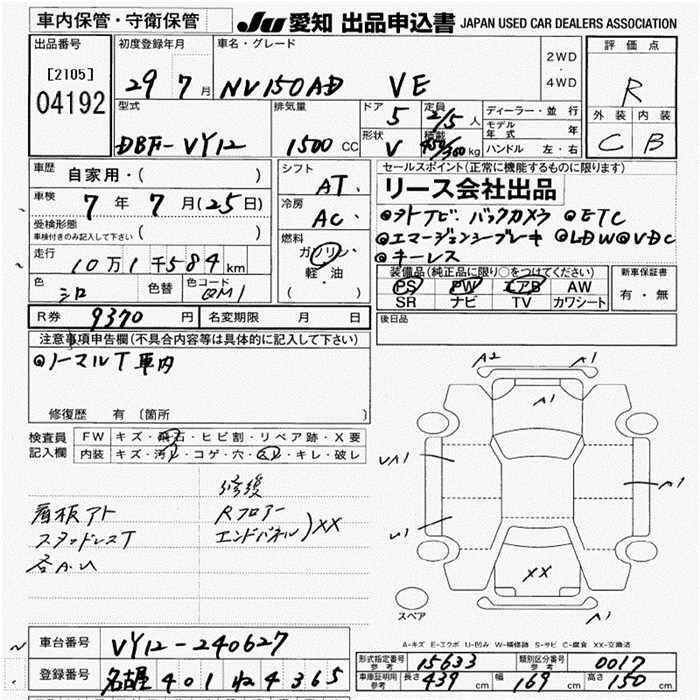 車内保管・守衛保管
JU 愛知 出品申込書 JAPAN USED CAR DEALERS ASSOCIATION
出品番号
[2105]
04192
初度登録年月
29 7月
車名・グレード
NV150AD VE
2WD
・
4WD
評価点
R
外装 内装
C B
型式
DBF-VY12
排気量
1500 CC
ドア
5
定員
2/5人
形状
V
積載
kg
ディーラー・並行
モデル年式 年
ハンドル 左・右
車歴
自家用・( )
車検
7年7月(25日)
受検形態
車検付きのみ記入して下さい ( )
走行
10万1千584km
色
シロ
色替
色コード
QM1
シフト
AT.
冷房
AC.
燃料
ガソリン
軽・油
( )
セールスポイント(正常に機能するものに限ります)
リース会社出品
◎タトナビ バックカメラ ◎ETC
◎エマージェンシーブレーキ ◎LDW◎VDC
◎キーレス
装備品(純正品に限り○をつけてください)
PS PW エアB AW
SR ナビ TV カワシート
新車保証書
有・無
R券 9370円
名変期限 月 日
後日品
注意事項申告欄(不具合内容等は具体的に記入して下さい)
◎ノーマルT車内
修復歴 有 〔箇所 〕
検査員記入欄
FW キズ・飛石・ヒビ割・リペア跡・X要
内装 キズ・汚れ・コゲ・穴・スレ・キレ・破レ
看板アト
スタッドレスT
各A.U
修後
Rフロアー
エンドパネル)XX
A2 A1
A1
UA1
A1
U1
XX
A1
スペア
A-キズ E-エクボ U-凹み W-補修跡 S-サビ C-腐食 XX-交換済
車台番号 VY12-240627
登録番号 名古屋 401 ね 4365
形式指定番号 参考 15633
類別区分番号 参考 0017
車庫証明用 参考 長さ 439cm 幅 169cm 高さ 150cm